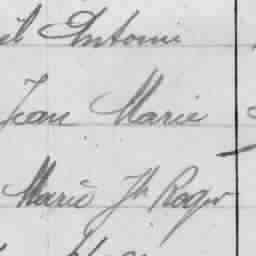 il Antoine
Jean Marie
Marie Jh Roger